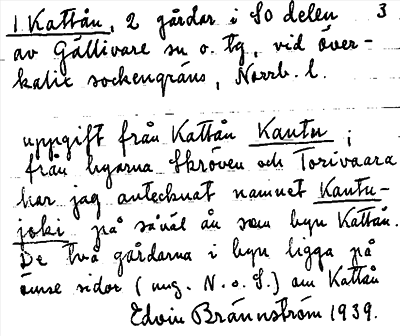 1. Kattån, 2 gårdar i SO delen 3
av Gällivare sn o. tg, vid över-
kalix sockengräns, Norrb. l.
uppgift från Kattån Kantu;
från byarna Skröven och Torivaara
har jag antecknat namnet Kantu-
joki på såväl ån som byn Kattån.
De två gårdarna i byn ligga på
ömse sidor (ung. N. o. S.) om Kattån
Edvin Brännström 1939.